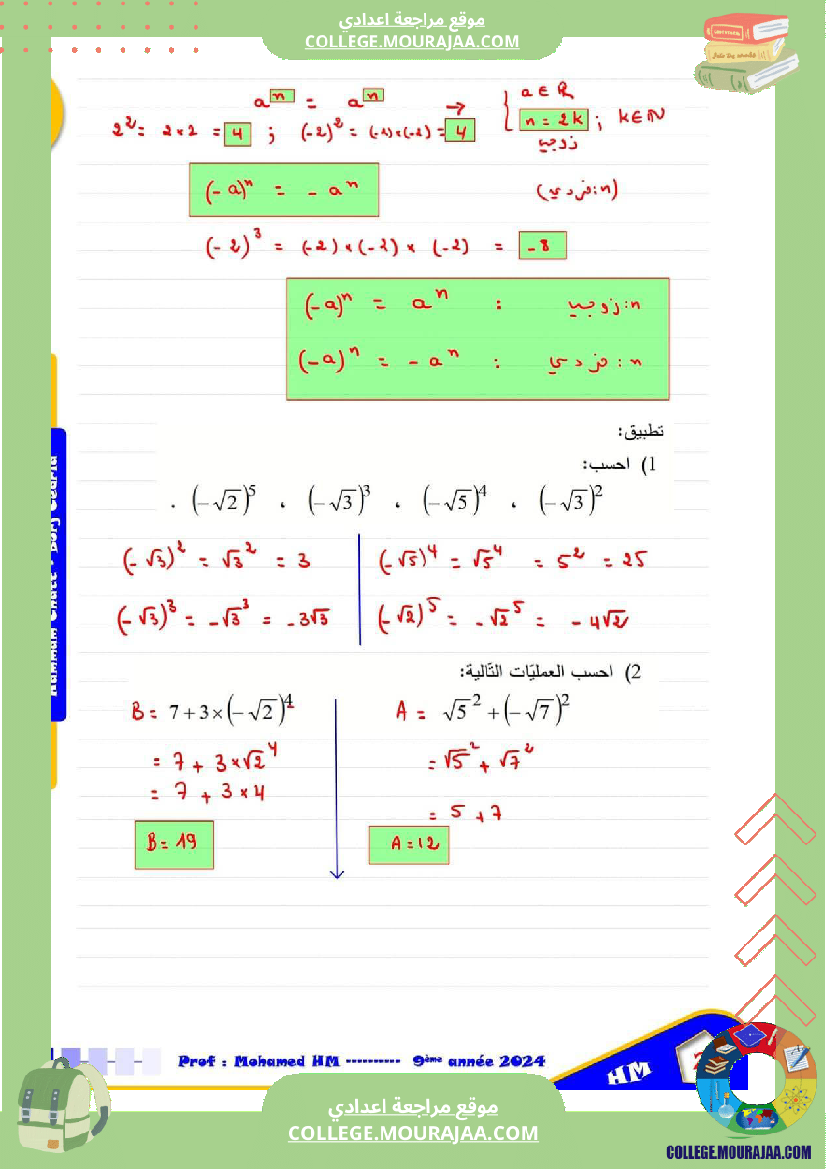 موقع مراجعة اعدادي
COLLEGE.MOURAJAA.COM
aⁿ = aⁿ { a ∈ ℝ
n = 2k ; k ∈ ℕ
زوجي
2² = 2 × 2 = 4 ; (-2)² = (-2)×(-2) = 4
(-a)ⁿ = - aⁿ (n: فردي)
(-2)³ = (-2) × (-2) × (-2) = -8
(-a)ⁿ = aⁿ : n: زوجي
(-a)ⁿ = - aⁿ : n: فردي
تطبيق:
1) احسب:
(-√3)² ، (-√5)⁴ ، (-√3)³ ، (-√2)⁵ .
(-√3)² = √3² = 3
(-√5)⁴ = √5⁴ = 5² = 25
(-√3)³ = -√3³ = -3√3
(-√2)⁵ = -√2⁵ = -4√2
2) احسب العمليّات التّالية:
A = √5² + (-√7)²
= √5² + √7²
= 5 + 7
A = 12
B = 7 + 3 × (-√2)⁴
= 7 + 3 × √2⁴
= 7 + 3 × 4
B = 19
Prof : Mohamed HM ---------- 9ème année 2024
HM
موقع مراجعة اعدادي
COLLEGE.MOURAJAA.COM
COLLEGE.MOURAJAA.COM